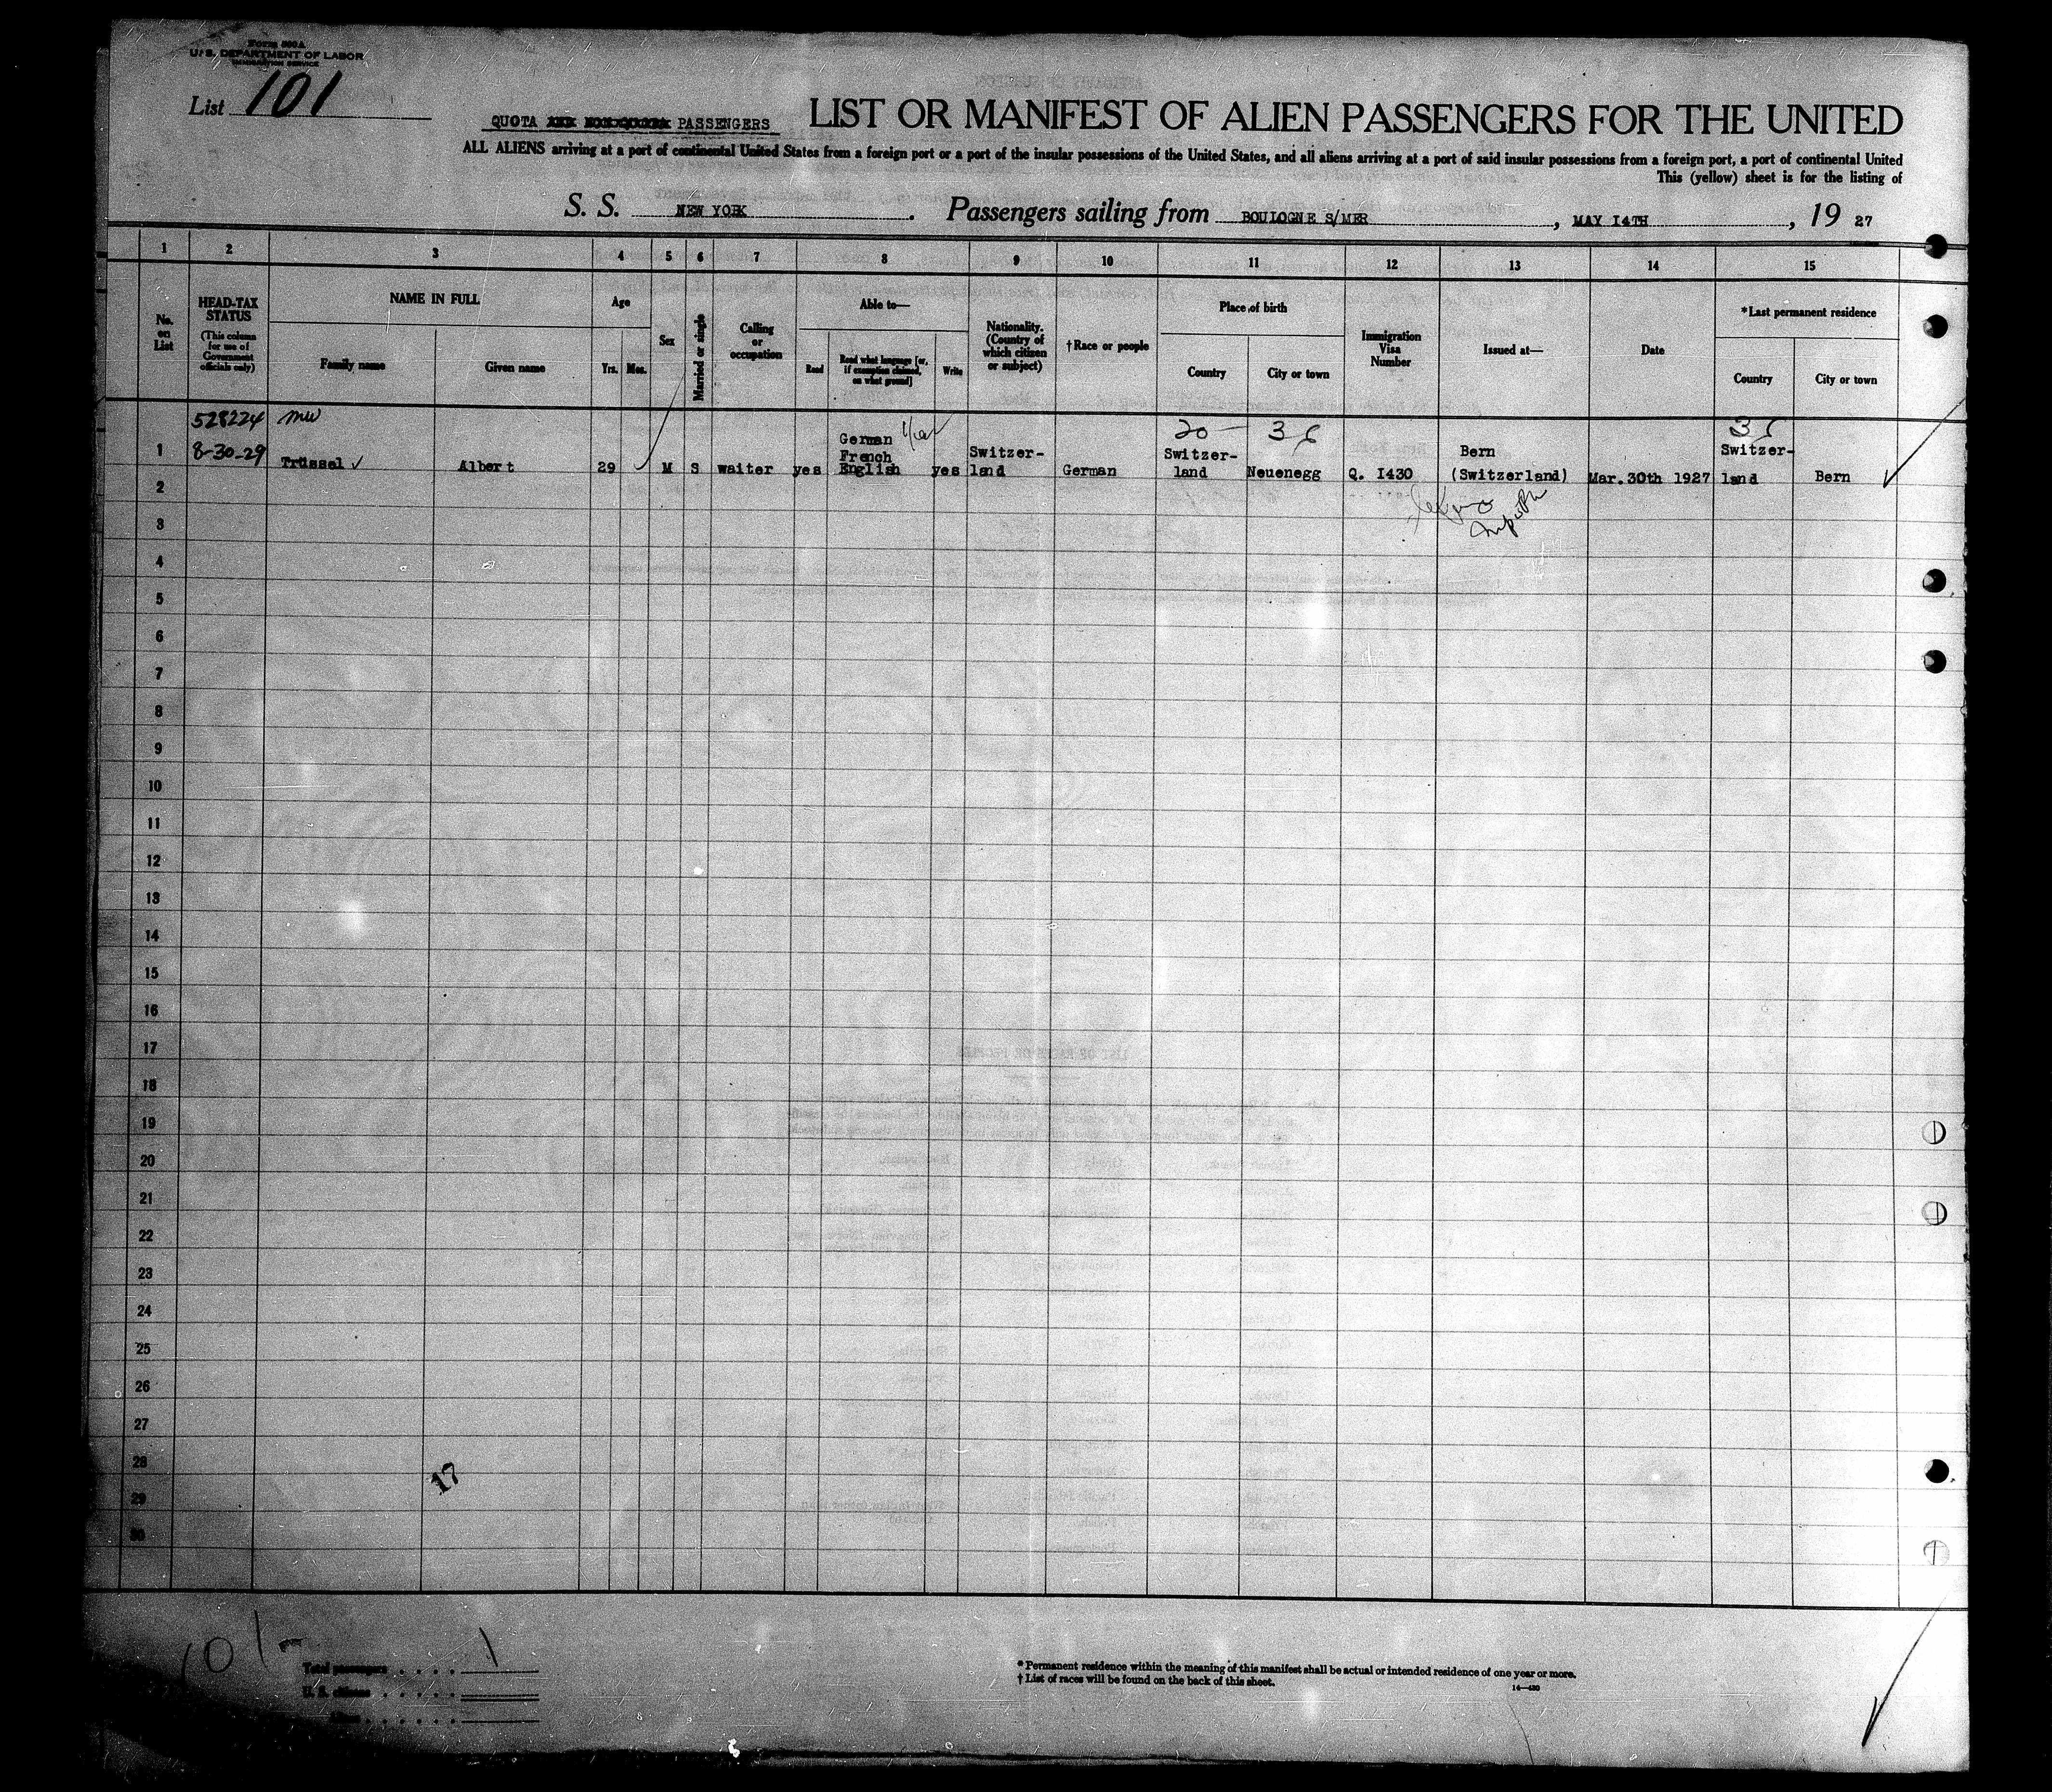 Form 500A
U. S. DEPARTMENT OF LABOR
IMMIGRATION SERVICE
List 101
QUOTA PASSENGERS
LIST OR MANIFEST OF ALIEN PASSENGERS FOR THE UNITED
ALL ALIENS arriving at a port of continental United States from a foreign port or a port of the insular possessions of the United States, and all aliens arriving at a port of said insular possessions from a foreign port, a port of continental United
This (yellow) sheet is for the listing of
S. S. NEW YORK. Passengers sailing from BOULOGNE S/MER, MAY I4TH, 19 27
1 2 3 4 5 6 7 8 9 10 11 12 13 14 15
No. on List
HEAD-TAX STATUS
(This column for use of Government officials only)
NAME IN FULL
Family name
Given name
Age
Yrs. Mos.
Sex
Married or single
Calling or occupation
Able to—
Read
Read what language [or, if exemption claimed, on what ground]
Write
Nationality. (Country of which citizen or subject)
†Race or people
Place of birth
Country
City or town
Immigration Visa Number
Issued at—
Date
*Last permanent residence
Country
City or town
528224 mw 20 36 36
1 8-30-29 Trüssel ✓ Albert 29 M S waiter yes German French English yes Switzer-land German Switzer-land Neuenegg Q. I430 Bern (Switzerland) Mar.30th 1927 Switzer-land Bern
2
3
4
5
6
7
8
9
10
11
12
13
14
15
16
17
18
19
20
21
22
23
24
25
26
27
28
17
29
30
101-
Total passengers . . . . 1
U. S. citizens . . . . .
Aliens . . . . . .
*Permanent residence within the meaning of this manifest shall be actual or intended residence of one year or more.
†List of races will be found on the back of this sheet.
14—430